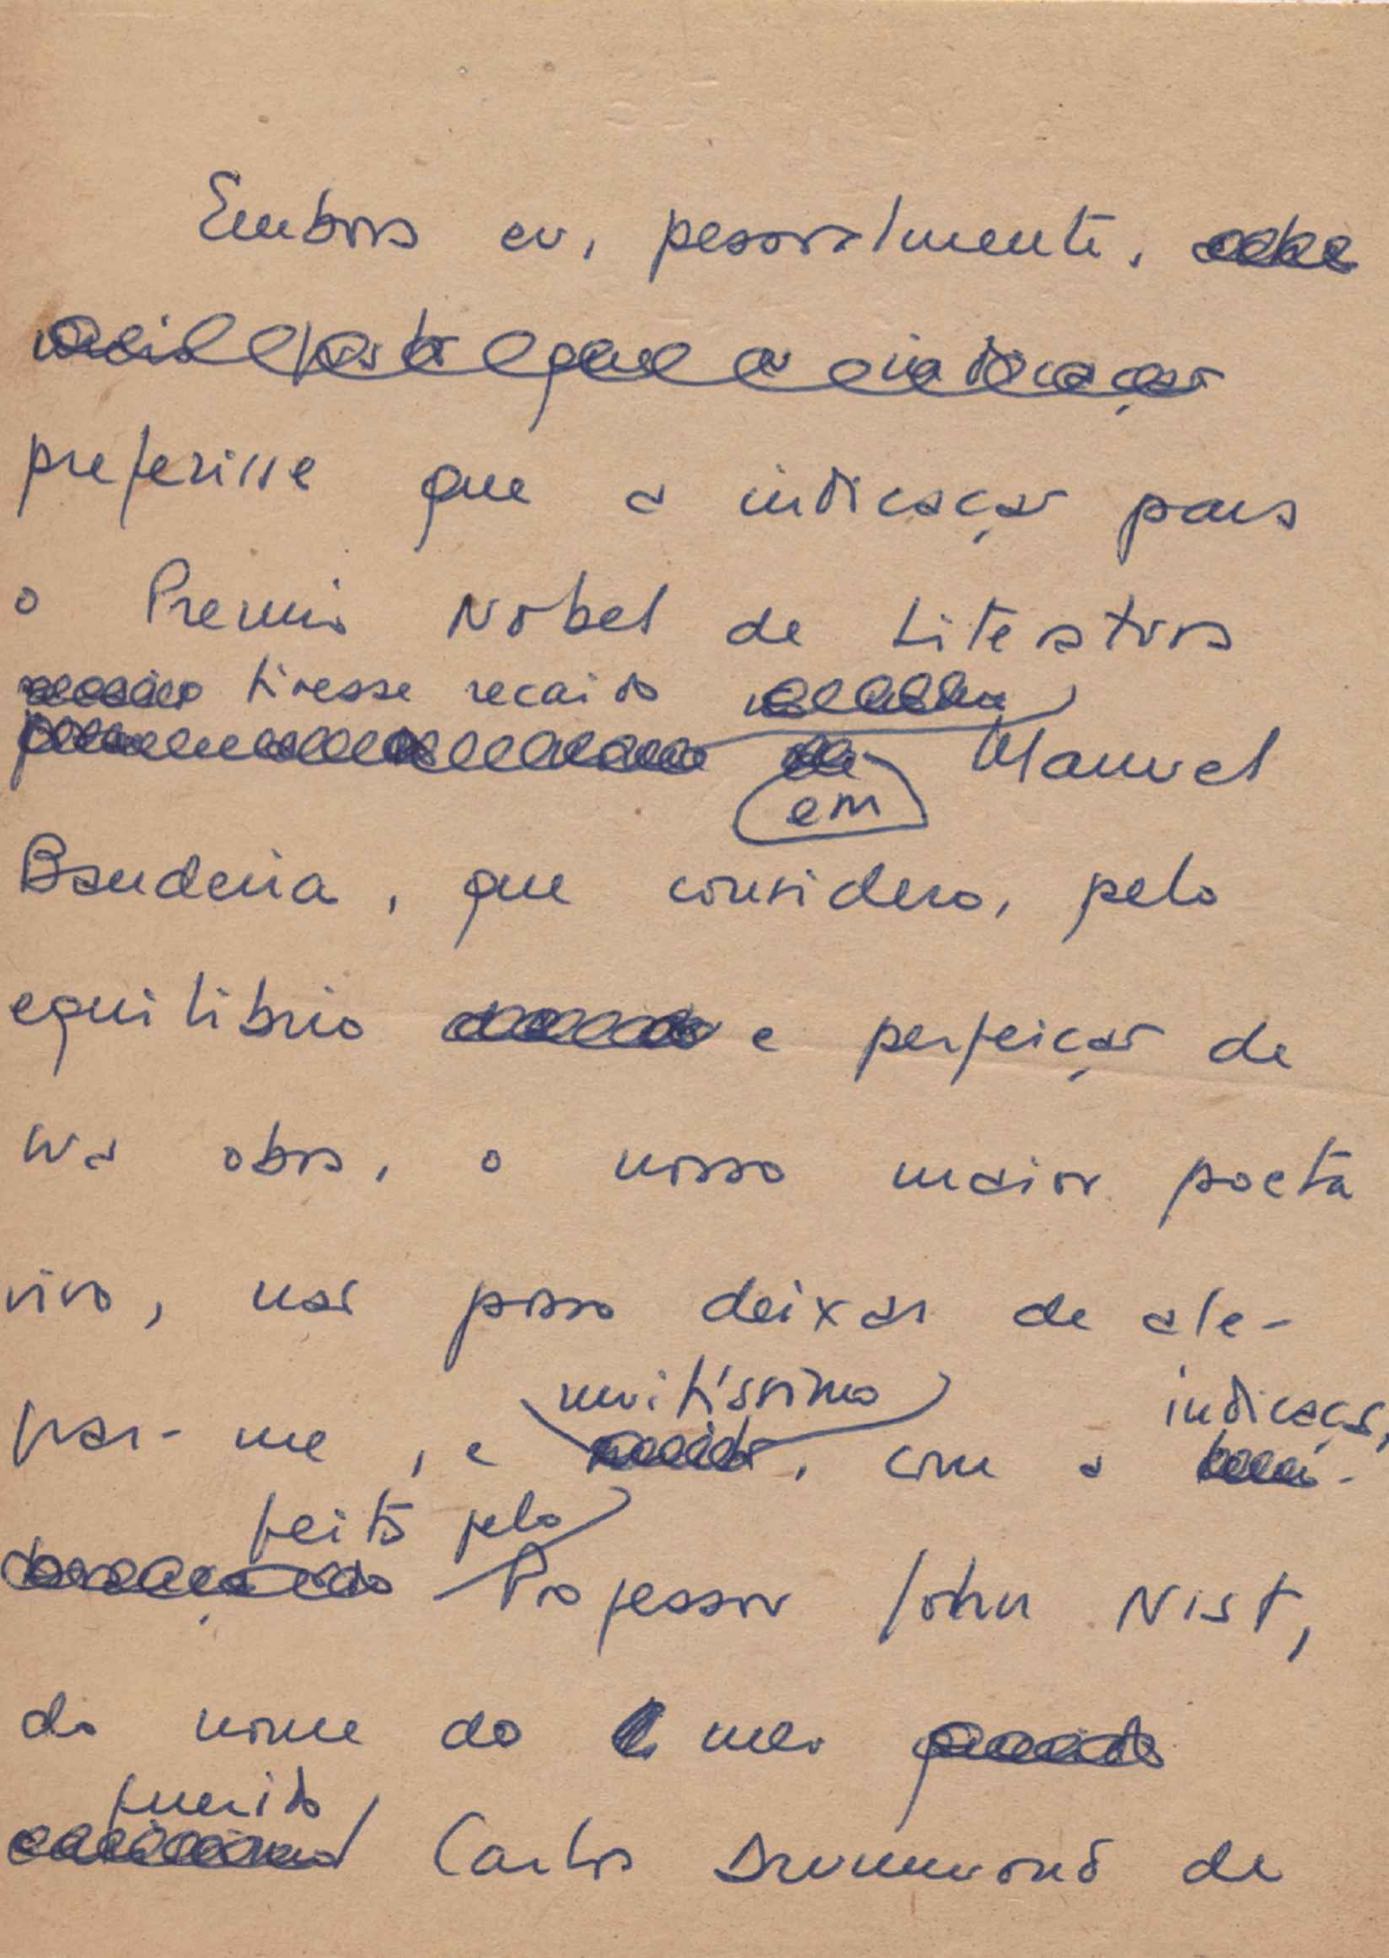 Embora eu, pessoalmente,
preferisse que a indicação para
o Premio Nobel de Literatura
tivesse recaido
em Manuel
Bandeira, que considero, pelo
equilibrio e perfeição de
sua obra, o nosso maior poeta
vivo, não posso deixar de ale-
grar-me, e muitíssimo, com a indicação,
feita pelo Professor John Nist,
do nome do meu
querido Carlos Drummond de